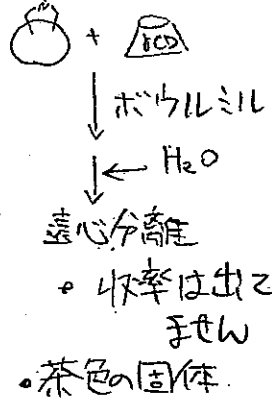 + γCD
ボウルミル
H₂O
遠心分離
・収率は出て
ません
・茶色の固体